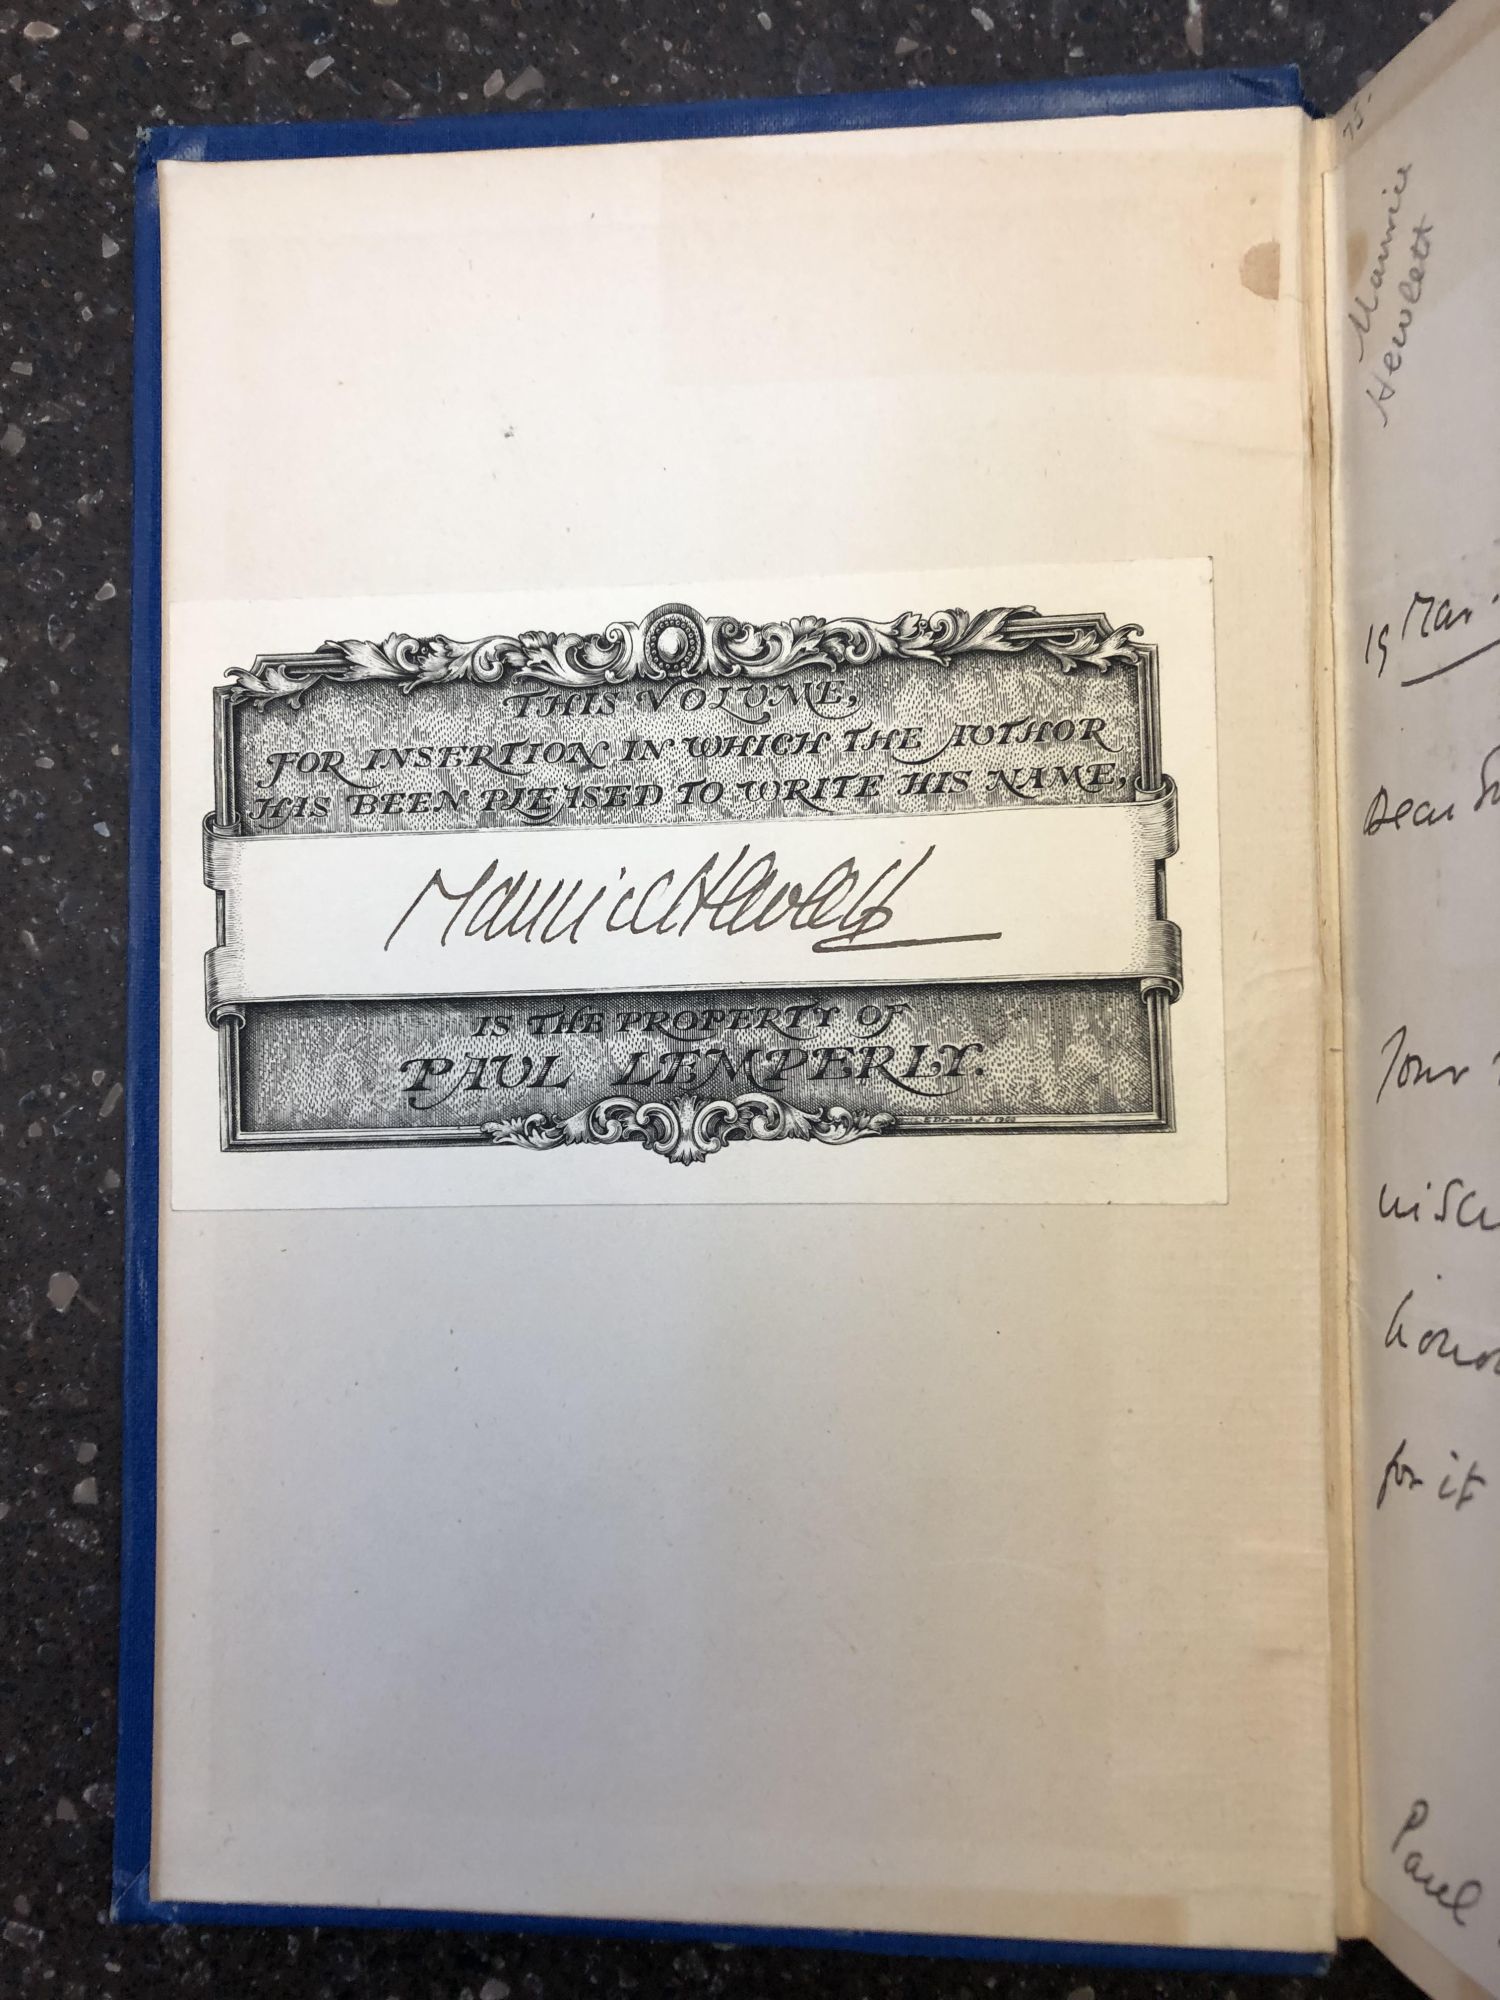 THIS VOLUME,
FOR INSERTION IN WHICH THE AUTHOR
HAS BEEN PLEASED TO WRITE HIS NAME,
Maurice Hewlett
IS THE PROPERTY OF
PAUL LEMPERLY.
75.
Maurice
Hewlett
19
Dear
Your
for it
Paul